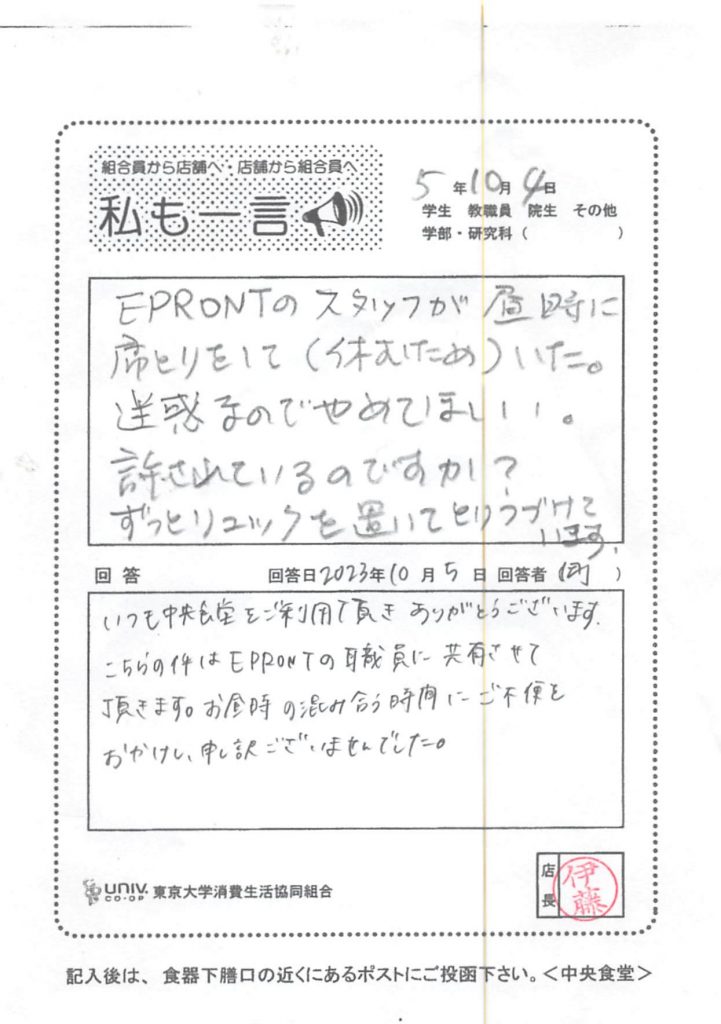 組合員から店舗へ・店舗から組合員へ
私も一言
5年10月4日
学生 教職員 院生 その他
学部・研究科（ ）
EPRONTのスタッフが昼時に
席とりをして（休むため）いた。
迷惑なのでやめてほしい。
許されているのですか？
ずっとリュックを置いてとりつづけて
います。
回答 回答日2023年10月5日 回答者（ ）
いつも中央食堂をご利用頂きありがとうございます。
こちらの件はEPRONTの職員に共有させて
頂きます。お昼時の混み合う時間にご不便を
おかけし、申し訳ございませんでした。
UNIV. CO-OP 東京大学消費生活協同組合
店長 伊藤
記入後は、食器下膳口の近くにあるポストにご投函下さい。＜中央食堂＞